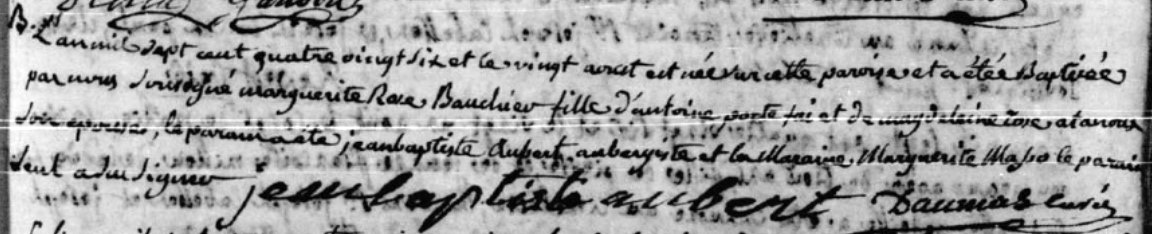 B.
L'an mil sept cent quatre vingt six et le vingt aoust est née sur cette paroisse et a étée Baptisée
par nous soussigné marguerite Rose Bauchier fille d'antoine porte faix et de magdeleine
son epouse, le parain a été jean baptiste Aubert aubergiste et la Maraine Marguerite le parain
seul a su signer jean baptiste aubert. Daumas curé